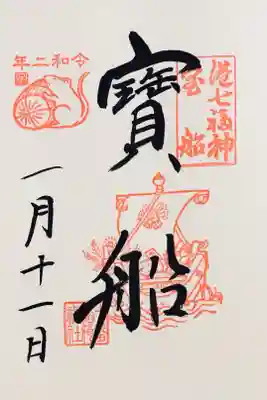 港七福神
宝船
寳船
令和二年
一月十一日